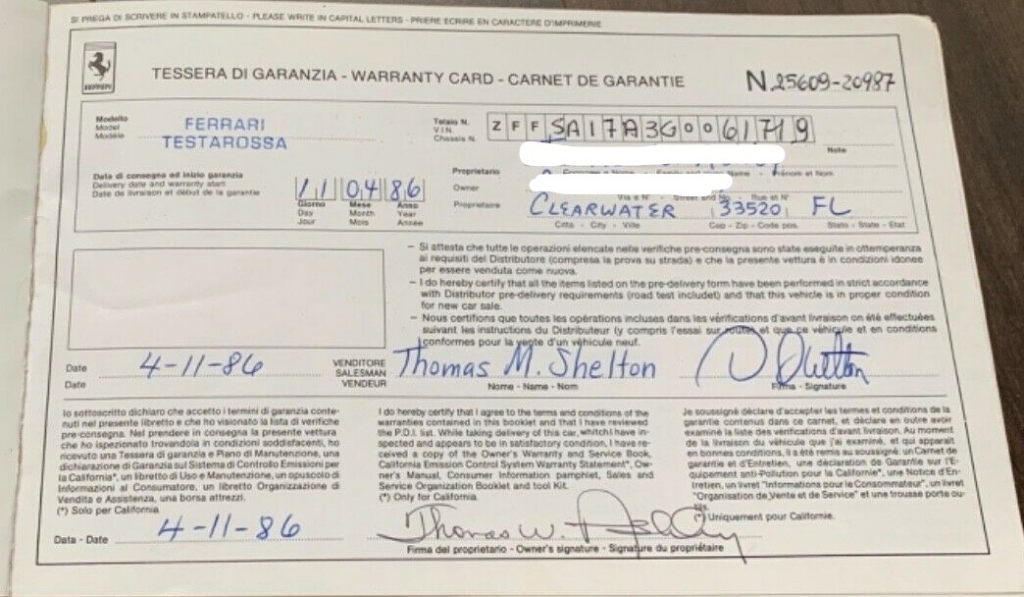 SI PREGA DI SCRIVERE IN STAMPATELLO - PLEASE WRITE IN CAPITAL LETTERS - PRIERE ECRIRE EN CARACTERE D'IMPRIMERIE
Ferrari
TESSERA DI GARANZIA - WARRANTY CARD - CARNET DE GARANTIE
N 25609-20987
Modello
Model
Modèle
FERRARI
TESTAROSSA
Telaio N.
V.I.N.
Chassis N.
ZFFSA17A3G0061719
Note
Data di consegna ed inizio garanzia
Delivery date and warranty start
Date de livraison et début de la garantie
11 04 86
Giorno Mese Anno
Day Month Year
Jour Mois Année
Proprietario
Owner
Propriétaire
Name - Prénom et Nom
Via e N° - Street and No - Rue et N°
CLEARWATER 33520 FL
Città - City - Ville Cap - Zip - Code pos. Stato - State - Etat
- Si attesta che tutte le operazioni elencate nelle verifiche pre-consegna sono state eseguite in ottemperanza
ai requisiti del Distributore (compresa la prova su strada) e che la presente vettura è in condizioni idonee
per essere venduta come nuova.
- I do hereby certify that all the items listed on the pre-delivery form have been performed in strict accordance
with Distributor pre-delivery requirements (road test includet) and that this vehicle is in proper condition
for new car sale.
- Nous certifions que toutes les opérations incluses dans les vérifications d'avant livraison on été effectuées
suivant les instructions du Distributeur (y compris l'essai sur routes) et que ce véhicule et en conditions
conformes pour la vente d'un véhicule neuf.
Date
Date
4-11-86
VENDITORE
SALESMAN
VENDEUR
Thomas M. Shelton
Nome - Name - Nom
Firma - Signature
Io sottoscritto dichiaro che accetto i termini di garanzia conte-
nuti nel presente libretto e che ho visionato la lista di verifiche
pre-consegna. Nel prendere in consegna la presente vettura
che ho ispezionato trovandola in condizioni soddisfacenti, ho
ricevuto una Tessera di garanzia e Piano di Manutenzione, una
dichiarazione di Garanzia sul Sistema di Controllo Emissioni per
la California*, un libretto di Uso e Manutenzione, un opuscolo di
Informazioni al Consumatore, un libretto Organizzazione di
Vendita e Assistenza, una borsa attrezzi.
(*) Solo per California
I do hereby certify that I agree to the terms and conditions of the
warranties contained in this booklet and that I have reviewed
the P.D.I. list. While taking delivery of this car, which I have in-
spected and appears to be in satisfactory condition, I have re-
ceived a copy of the Owner's Warranty and Service Book,
California Emission Control System Warranty Statement*, Ow-
ner's Manual, Consumer Information pamphlet, Sales and
Service Organization Booklet and tool Kit.
(*) Only for California.
Je soussigné déclare d'accepter les termes et conditions de la
garantie contenus dans ce carnet, et déclare en outre avoir
examiné la liste des vérifications d'avant livraison. Au moment
de la livraison du véhicule que j'ai examiné, et qui apparaît
en bonnes conditions, il a été remis au soussigné: un Carnet de
garantie et d'Entretien, une déclaration de Garantie sur l'E-
quipement anti-Pollution pour la Californie*, une Notice d'En-
tretien, un livret "Informations pour le Consommateur", un livret
"Organisation de Vente et de Service" et une trousse porte ou-
tils.
(*) Uniquement pour Californie.
Data - Date
4-11-86
Thomas W.
Firma del proprietario - Owner's signature - Signature du propriétaire